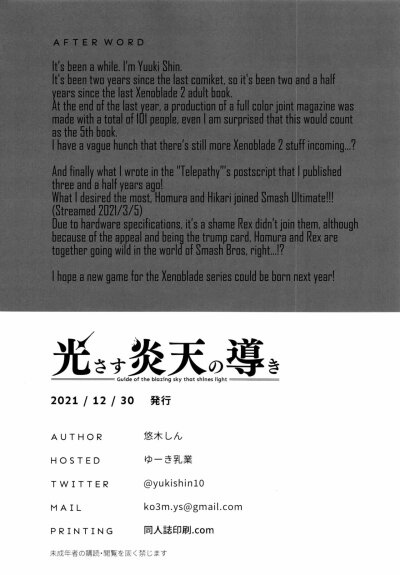 AFTER WORD
It's been a while. I'm Yuuki Shin.
It's been two years since the last comiket, so it's been two and a half
years since the last Xenoblade 2 adult book.
At the end of the last year, a production of a full color joint magazine was
made with a total of 101 people, even I am surprised that this would count
as the 5th book.
I have a vague hunch that there's still more Xenoblade 2 stuff incoming...?
And finally what I wrote in the "Telepathy"'s postscript that I published
three and a half years ago!
What I desired the most, Homura and Hikari joined Smash Ultimate!!!
(Streamed 2021/3/5)
Due to hardware specifications, it's a shame Rex didn't join them, although
because of the appeal and being the trump card, Homura and Rex are
together going wild in the world of Smash Bros, right...!?
I hope a new game for the Xenoblade series could be born next year!
光さす炎天の導き
Guide of the blazing sky that shines light
2021 / 12 / 30 発行
AUTHOR 悠木しん
HOSTED ゆーき乳業
TWITTER @yukishin10
MAIL ko3m.ys@gmail.com
PRINTING 同人誌印刷.com
未成年者の購読・閲覧を固く禁じます